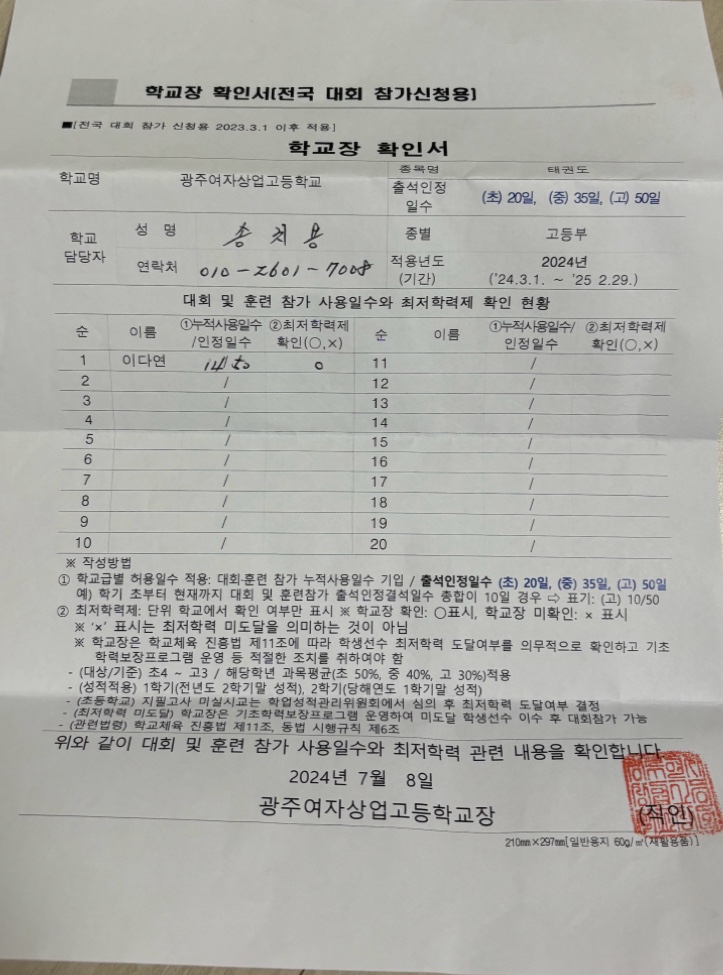 학교장 확인서(전국 대회 참가신청용)
■[전국 대회 참가 신청용 2023.3.1 이후 적용]
학교장 확인서
학교명 광주여자상업고등학교 종목명 태권도
출석인정 일수 (초) 20일, (중) 35일, (고) 50일
학교 담당자 성 명 송 용 종별 고등부
연락처 010-2601-7008 적용년도 (기간) 2024년 ('24.3.1. ~ '25 2.29.)
대회 및 훈련 참가 사용일수와 최저학력제 확인 현황
순 이름 ①누적사용일수/인정일수 ②최저학력제 확인(○,×) 순 이름 ①누적사용일수/인정일수 ②최저학력제 확인(○,×)
1 이다연 14/50 ○ 11 /
2 / 12 /
3 / 13 /
4 / 14 /
5 / 15 /
6 / 16 /
7 / 17 /
8 / 18 /
9 / 19 /
10 / 20 /
※ 작성방법
① 학교급별 허용일수 적용: 대회·훈련 참가 누적사용일수 기입 / 출석인정일수 (초) 20일, (중) 35일, (고) 50일
예) 학기 초부터 현재까지 대회 및 훈련참가 출석인정결석일수 총합이 10일 경우 ⇨ 표기: (고) 10/50
② 최저학력제: 단위 학교에서 확인 여부만 표시 ※ 학교장 확인: ○표시, 학교장 미확인: × 표시
※ '×' 표시는 최저학력 미도달을 의미하는 것이 아님
※ 학교장은 학교체육 진흥법 제11조에 따라 학생선수 최저학력 도달여부를 의무적으로 확인하고 기초
학력보장프로그램 운영 등 적절한 조치를 취하여야 함
- (대상/기준) 초4 ~ 고3 / 해당학년 과목평균(초 50%, 중 40%, 고 30%)적용
- (성적적용) 1학기(전년도 2학기말 성적), 2학기(당해연도 1학기말 성적)
- (초등학교) 지필고사 미실시교는 학업성적관리위원회에서 심의 후 최저학력 도달여부 결정
- (최저학력 미도달) 학교장은 기초학력보장프로그램 운영하여 미도달 학생선수 이수 후 대회참가 가능
- (관련법령) 학교체육 진흥법 제11조, 동법 시행규칙 제6조
위와 같이 대회 및 훈련 참가 사용일수와 최저학력 관련 내용을 확인합니다
2024년 7월 8일
광주여자상업고등학교장 (직인)
210mm×297mm[일반용지 60g/㎡(재활용품)]